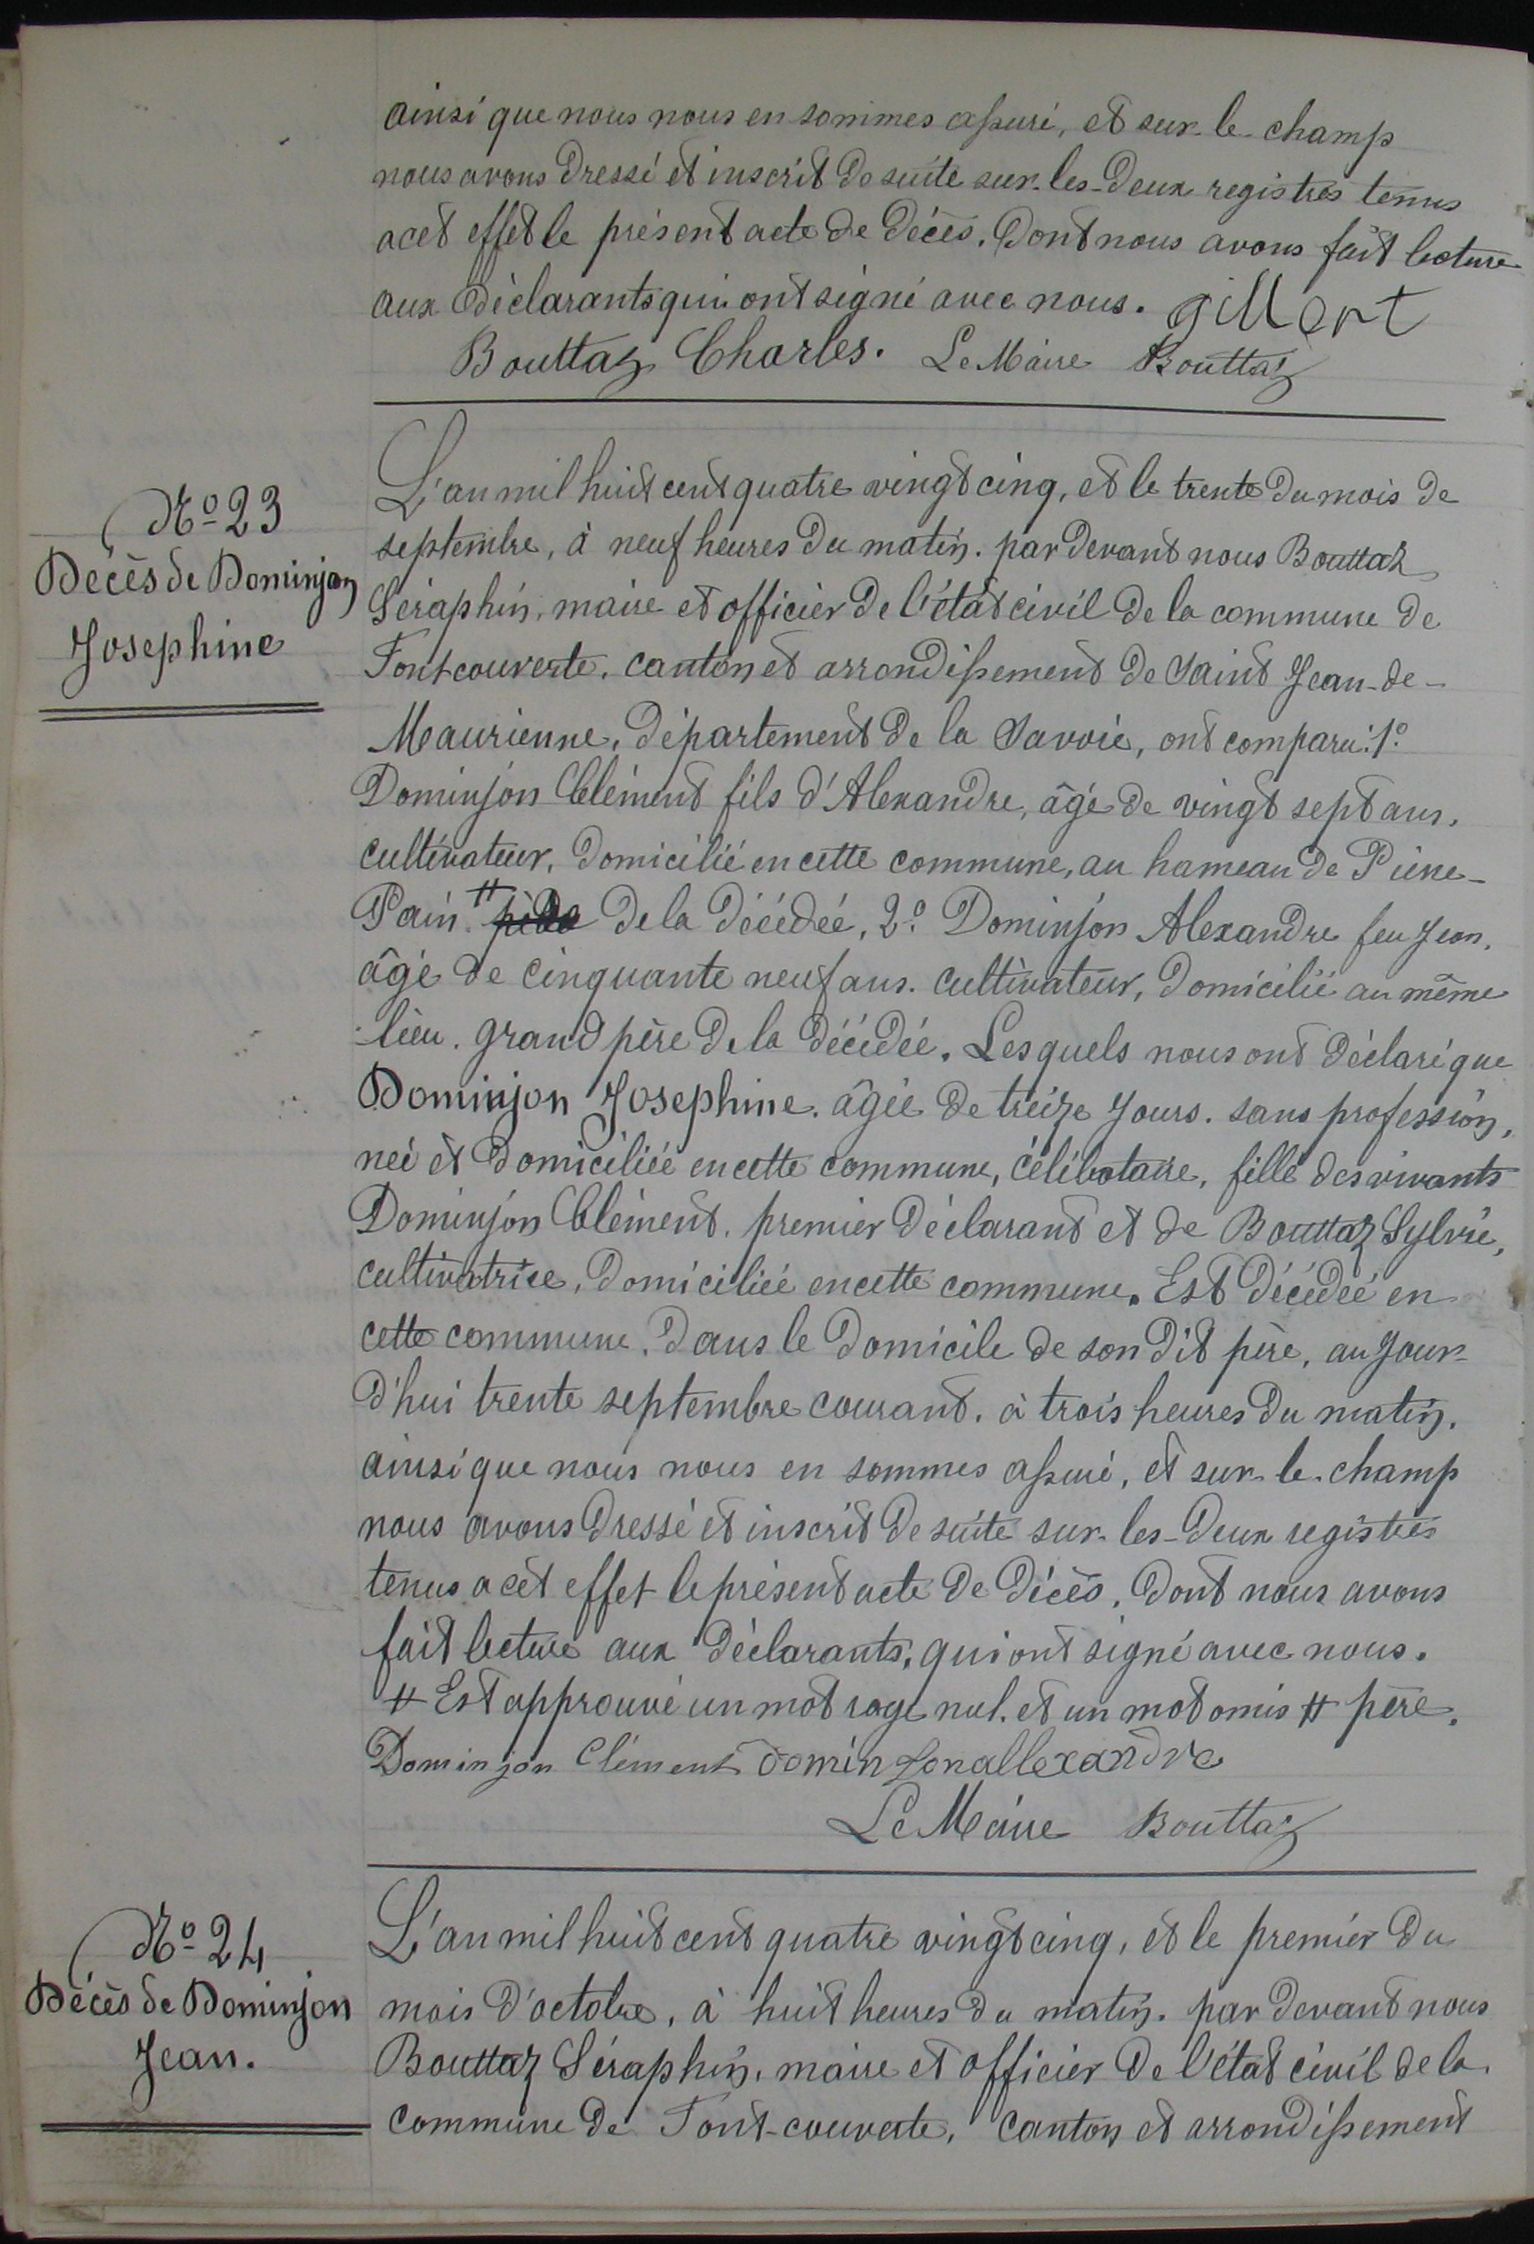 ainsi que nous nous en sommes assuré, et sur-le-champ
nous avons dressé et inscrit de suite sur-les-deux registres tenus
acet effet le présent acte de décès. Dont nous avons fait lecture
aux déclarants qui ont signé avec nous. gillbert
Bouttaz Charles. Le Maire Bouttaz
N° 23
Décès de Dominjon
Josephine
L'an mil huit cent quatre vingt cinq, et le trente du mois de
septembre, à neuf heures du matin. par devant nous Bouttaz
Séraphin, maire et officier de l'état civil de la commune de
Fontcouverte, canton et arrondissement de Saint Jean-de-
Maurienne, département de la Savoie, ont comparu: 1°
Dominjon Clément fils d'Alexandre, âgé de vingt sept ans,
cultivateur, domicilié en cette commune, au hameau de Pierre-
Pain # de la décédée, 2° Dominjon Alexandre feu Jean,
âgé de cinquante neuf ans. cultivateur, domicilié au même
lieu. grand père de la décédée. Lesquels nous ont déclaré que
Dominjon Josephine. âgée de treize jours. sans profession,
née et domiciliée en cette commune, célibataire, fille des vivants
Dominjon Clément, premier déclarant et de Bouttaz Sylvie,
cultivatrice, domiciliée en cette commune. Est décédée en
cette commune, dans le domicile de son dit père, aujour-
d'hui trente septembre courant, à trois heures du matin,
ainsi que nous nous en sommes assuré, et sur-le-champ
nous avons dressé et inscrit de suite sur-les-deux registres
tenus a cet effet le présent acte de décès, dont nous avons
fait lecture aux déclarants, qui ont signé avec nous.
# Est approuvé un mot rayé nul. et un mot omis # père.
Dominjon Clément dominzonallexandre
Le Maire Bouttaz
N° 24
Décès de Dominjon
Jean.
L'an mil huit cent quatre vingt cinq, et le premier du
mois d'octobre, à huit heures du matin. par devant nous
Bouttaz Séraphin, maire et officier de l'état civil de la
commune de Font-couverte, canton et arrondissement